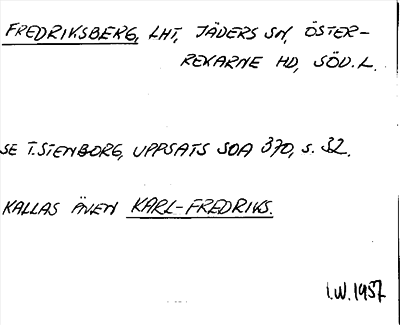 FREDRIKSBERG, LHT, JÄDERS SN, ÖSTER-
REKARNE HD, SÖD.L.
SE T.STENBORG, UPPSATS SOA 370, S. 32.
KALLAS ÄVEN KARL-FREDRIKS.
I.W. 1957